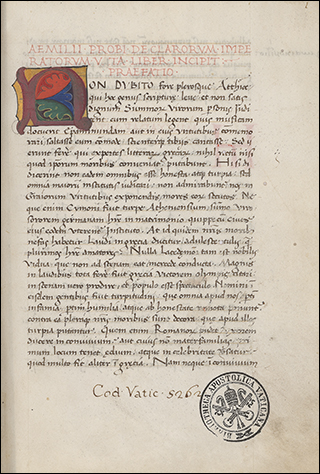 AEMILII PROBI DE CLARORVM IMPE
RATORVM VITA LIBER INCIPIT
PRAEFATIO
NON DVBITO fore plerosque Attice
qui hoc genus scripture leve et non satis
dignum Summor Virorum judi
cent cum relatum legent quis musicam
docuerit Epaminundam aut in eius virtutibus comemo
rari saltasse eum comode scienterque tibiis cantasse Sed ij
erunt fere qui expertes nihil nisi
quod ipsorum moribus conveniat putabunt Hi si di
dicerint non eadem omnibus esse honesta atque turpia sed
omnia maiorum institutis judicari non admirabuntur nos in
Graiorum Virtutibus exponendis mores eorum secutos Ne
que enim Cimoni fuit turpe Atheniensium sumo Viro
sororem germanam habere in matrimonio quippe cum cives
eius eodem uterentur Instituto At id quidem moribus
nefas habetur Laudi in grecia Ducitur
plurimos habere amatores Nulla tam est nobilis
vidua que non ad eat mercede conducta Magnis
in laudibus tota fere fuit grecia Victorem citari
in scenam vero prodire et populo esse spectaculo Nemini
eisdem gentibus fuit turpitudini que omnia apud nos
partim humilia atque ab honestate remota ponunt
contra ea pleraque moribus sunt decora que apud illos
turpia putantur Quem enim Romanor pudet uxorem
ducere in convivium aut cuius non materfamilias
mum locum tenet edium atque in celebritate versatur
quod multo fit aliter grecia Nam neque convivium
Cod Vatic 5262
BIBLIOTHECA APOSTOLICA VATICANA